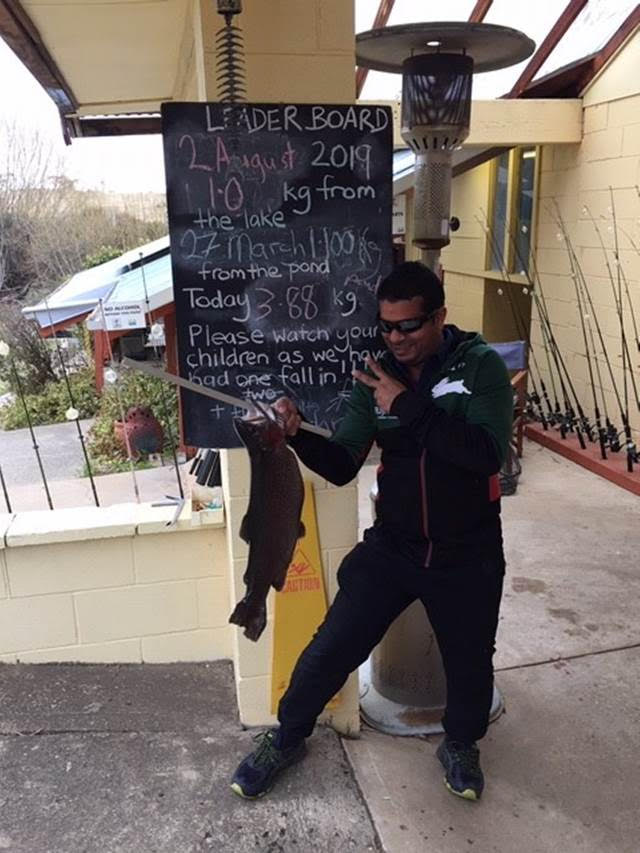 LEADER BOARD
2 August 2019
kg from
the lake
27 March 1.100 kg
from the pond
And
Today 3.88 kg
Please watch your
children as we have
had one fall in!!
two
NO ALCOHOL
CAUTION